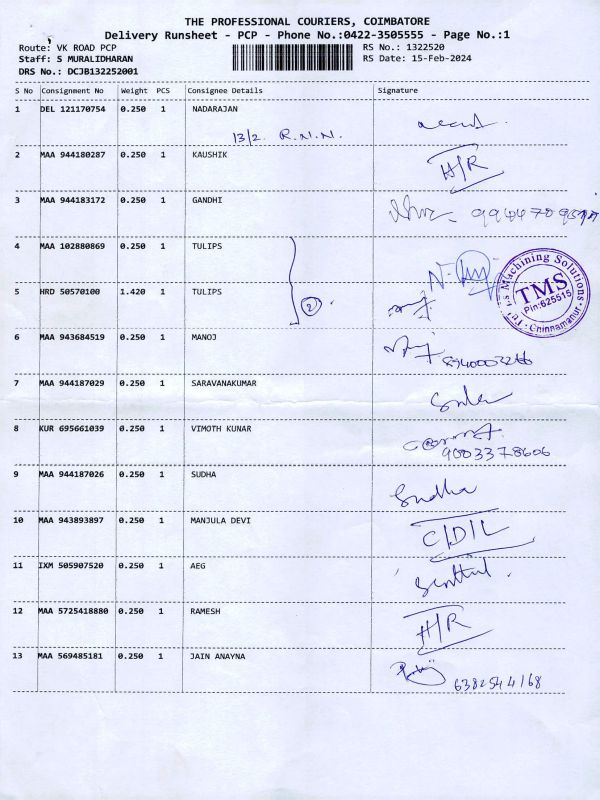 THE PROFESSIONAL COURIERS, COIMBATORE
Delivery Runsheet - PCP - Phone No.:0422-3505555 - Page No.:1
Route: VK ROAD PCP
Staff: S MURALIDHARAN
DRS No.: DCJB132252001
RS No.: 1322520
RS Date: 15-Feb-2024
S No Consignment No Weight PCS Consignee Details Signature
1 DEL 121170754 0.250 1 NADARAJAN
13/2 R.N.N.
2 MAA 944180287 0.250 1 KAUSHIK H/R
3 MAA 944183172 0.250 1 GANDHI
4 MAA 102880869 0.250 1 TULIPS
5 HRD 50570100 1.420 1 TULIPS 2
Machining Solutions
TMS
Pin:625515
Chinnamanur
6 MAA 943684519 0.250 1 MANOJ
7 MAA 944187029 0.250 1 SARAVANAKUMAR
8 KUR 695661039 0.250 1 VIMOTH KUNAR
9003378606
9 MAA 944187026 0.250 1 SUDHA Sudha
10 MAA 943893897 0.250 1 MANJULA DEVI C/D/L
11 IXM 505907520 0.250 1 AEG
12 MAA 5725418880 0.250 1 RAMESH H/R
13 MAA 569485181 0.250 1 JAIN ANAYNA